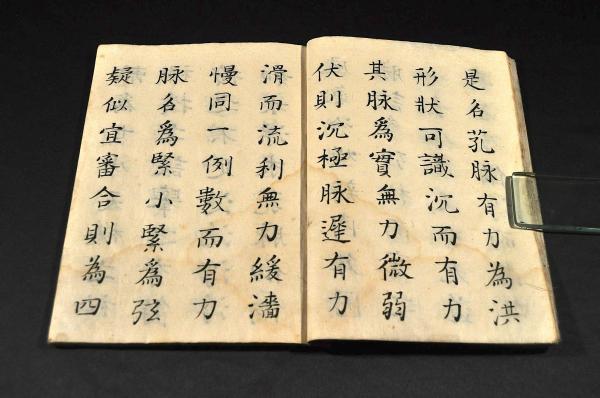 是名芤脉有力為洪
形狀可識沉而有力
其脉爲實無力微弱
伏則沉極脉遲有力
滑而流利無力緩濇
慢同一例數而有力
脉名爲緊小緊爲弦
疑似宜審合則為四